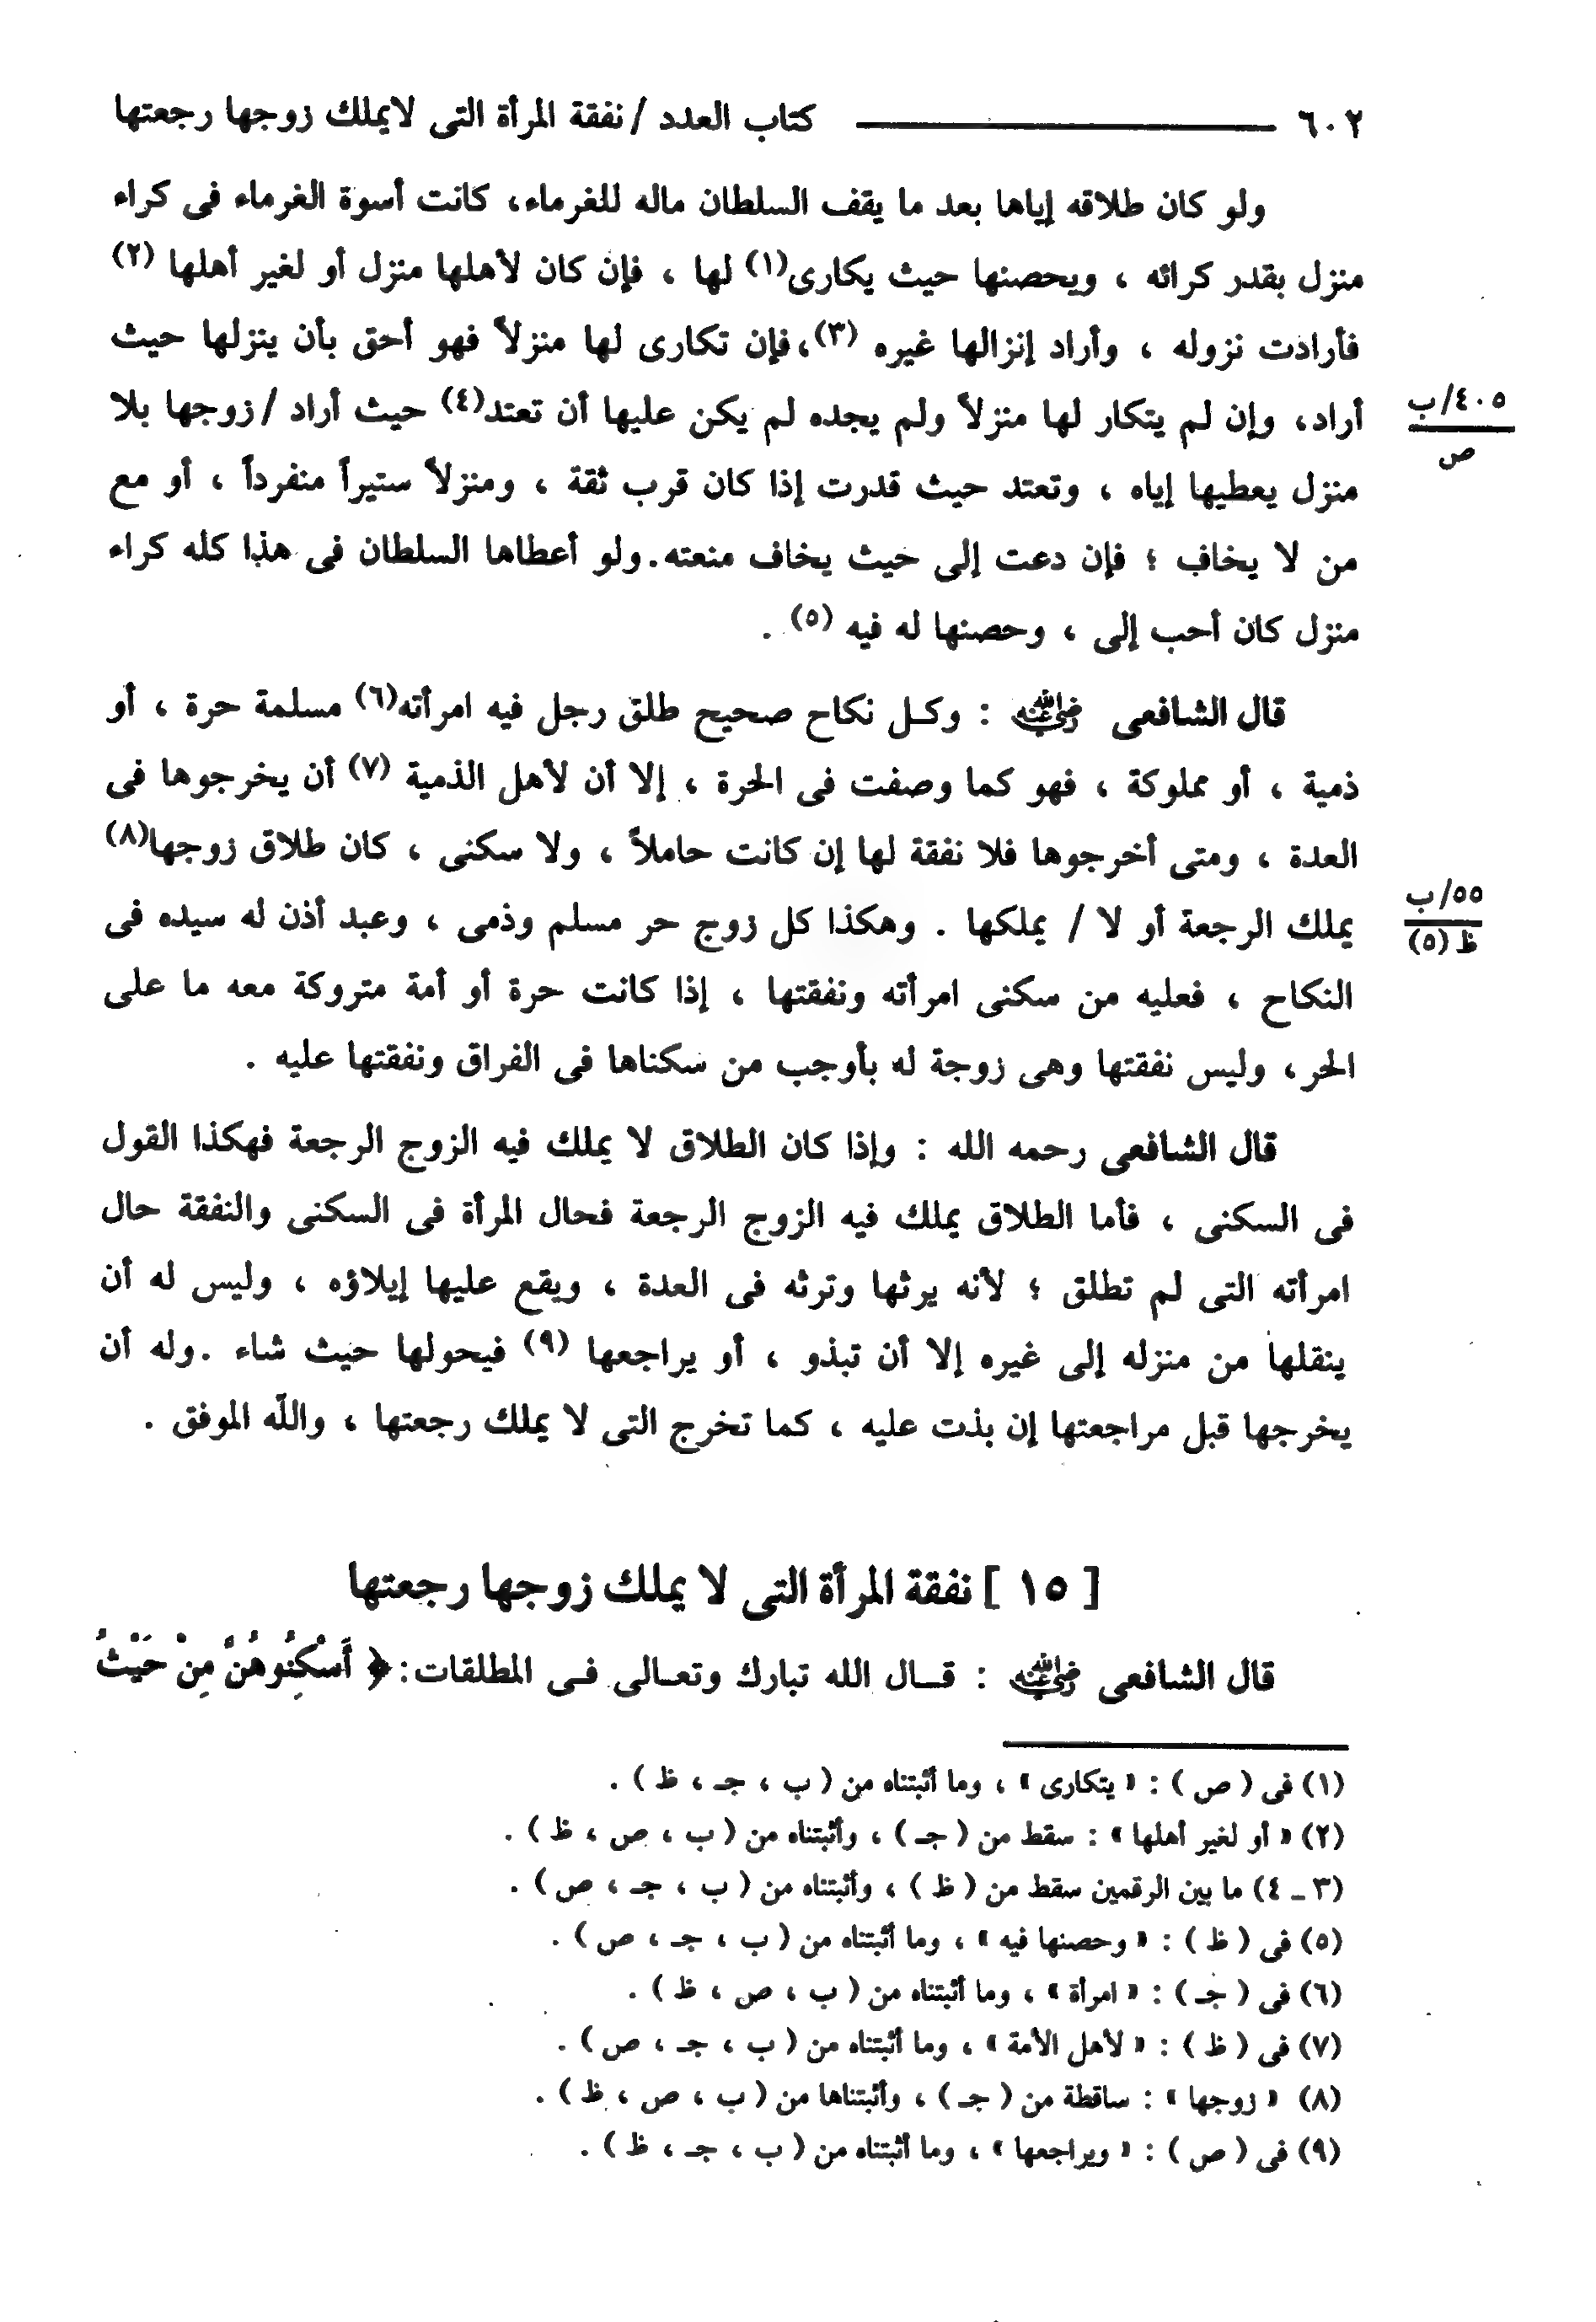 ٦٠٢ كتاب العدد / نفقة المرأة التى لايملك زوجها رجعتها
ولو كان طلاقه إياها بعد ما يقف السلطان ماله للغرماء، كانت أسوة الغرماء فى كراء
منزل بقدر كرائه ، ويحصنها حيث يكارى(١) لها ، فإن كان لأهلها منزل أو لغير أهلها (٢)
فأرادت نزوله ، وأراد إنزالها غيره (٣)،فإن تكارى لها منزلاً فهو أحق بأن ينزلها حيث
أراد، وإن لم يتكار لها منزلاً ولم يجده لم يكن عليها أن تعتد(٤) حيث أراد / زوجها بلا
٤٠٥/ب
ص
منزل يعطيها إياه ، وتعتد حيث قدرت إذا كان قرب ثقة ، ومنزلاً ستيراً منفرداً ، أو مع
من لا يخاف ؛ فإن دعت إلى حيث يخاف منعته.ولو أعطاها السلطان فى هذا كله كراء
منزل كان أحب إلى ، وحصنها له فيه (٥) .
قال الشافعى رضي الله عنه : وكـل نكاح صحيح طلق رجل فيه امرأته(٦) مسلمة حرة ، أو
ذمية ، أو مملوكة ، فهو كما وصفت فى الحرة ، إلا أن لأهل الذمية (٧) أن يخرجوها فى
العدة ، ومتى أخرجوها فلا نفقة لها إن كانت حاملاً ، ولا سكنى ، كان طلاق زوجها(٨)
يملك الرجعة أو لا / يملكها . وهكذا كل زوج حر مسلم وذمى ، وعبد أذن له سيده فى
٥٥/ب
ظ (٥)
النكاح ، فعليه من سكنى امرأته ونفقتها ، إذا كانت حرة أو أمة متروكة معه ما على
الحر، وليس نفقتها وهى زوجة له بأوجب من سكناها فى الفراق ونفقتها عليه .
قال الشافعى رحمه الله : وإذا كان الطلاق لا يملك فيه الزوج الرجعة فهكذا القول
فى السكنى ، فأما الطلاق يملك فيه الزوج الرجعة فحال المرأة فى السكنى والنفقة حال
امرأته التى لم تطلق ؛ لأنه يرثها وترثه فى العدة ، ويقع عليها إيلاؤه ، وليس له أن
ينقلها من منزله إلى غيره إلا أن تبذو ، أو يراجعها (٩) فيحولها حيث شاء .وله أن
يخرجها قبل مراجعتها إن بذت عليه ، كما تخرج التى لا يملك رجعتها ، والله الموفق .
[ ١٥ ] نفقة المرأة التى لا يملك زوجها رجعتها
قال الشافعى رضي الله عنه : قـــال الله تبارك وتعـالى فـى المطلقات: ﴿ أَسْكِنُوهُنَّ مِنْ حَيْثُ
(١) فى ( ص ) : « يتكارى » ، وما أثبتناه من ( ب ، جـ ، ظ ) .
(٢) « أو لغير أهلها » : سقط من ( جـ ) ، وأثبتناه من ( ب ، ص ، ظ ) .
(٣ ـ ٤) ما بين الرقمين سقط من ( ظ ) ، وأثبتناه من ( ب ، جـ ، ص ) .
(٥) فى ( ظ ) : « وحصنها فيه » ، وما أثبتناه من ( ب ، جـ ، ص ) .
(٦) فى ( جـ ) : « امرأة » ، وما أثبتناه من ( ب ، ص ، ظ ) .
(٧) فى ( ظ ) : « لأهل الأمة » ، وما أثبتناه من ( ب ، جـ ، ص ) .
(٨) « زوجها » : ساقطة من ( جـ ) ، وأثبتناها من ( ب ، ص ، ظ ) .
(٩) فى ( ص ) : « ويراجعها » ، وما أثبتناه من ( ب ، جـ ، ظ ) .